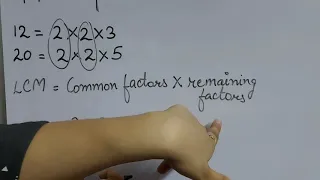 12 = 2 × 2 × 3
20 = 2 × 2 × 5
LCM = Common factors × remaining
factors